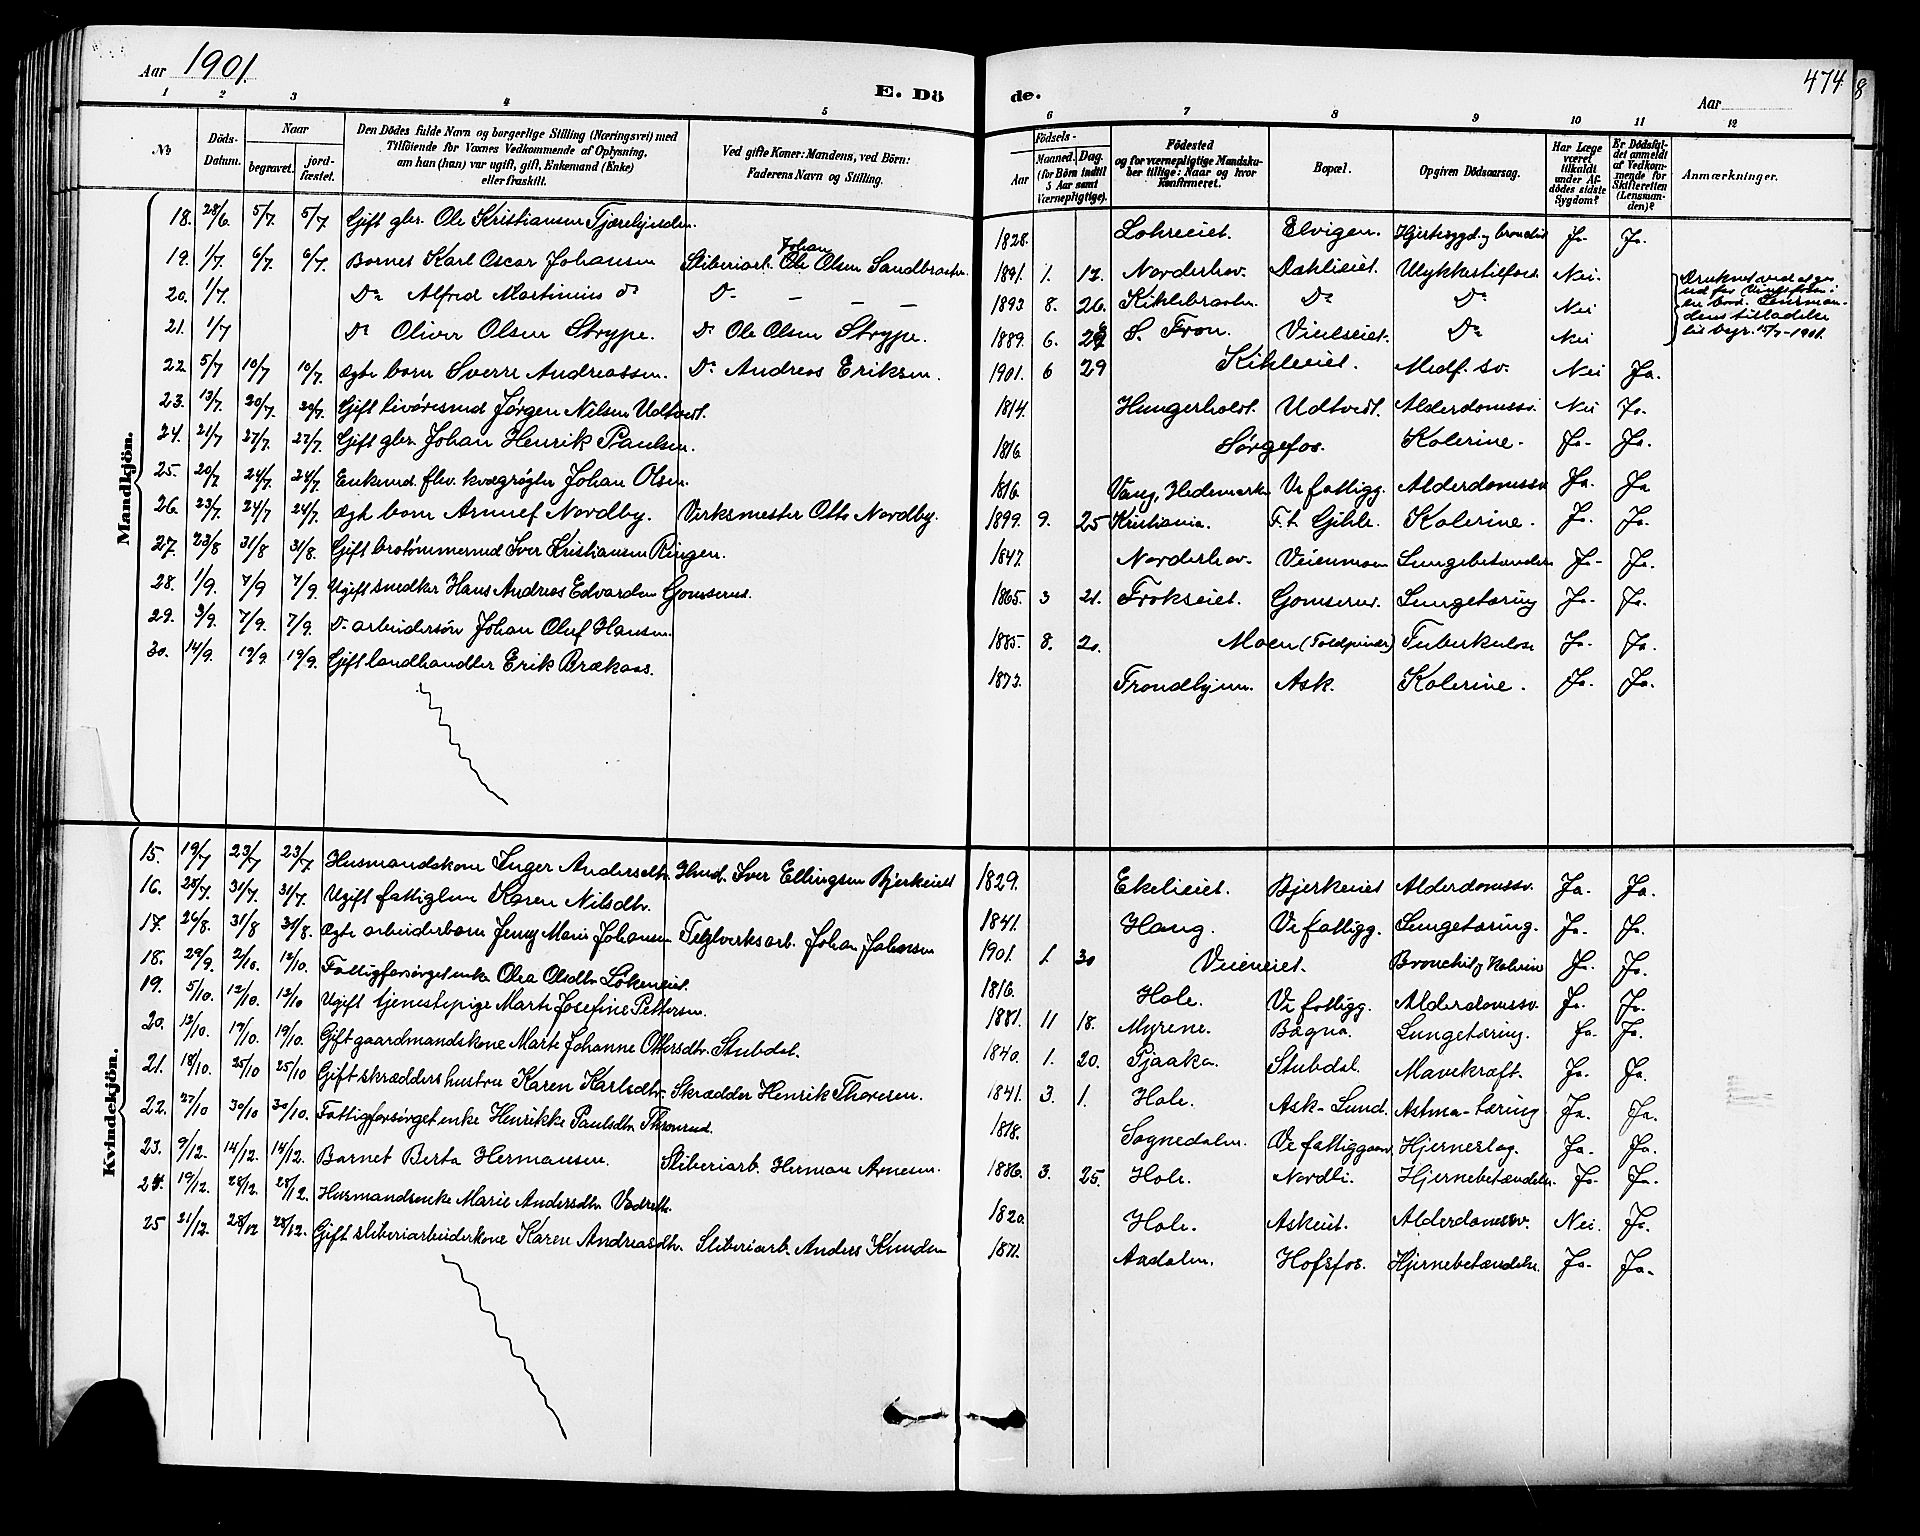 Aar 1901.
E. Dö
de.
Aar
474
8
1 2 3 4 5 6 7 8 9 10 11 12
No
Döds-Datum.
Naar
begravet.
jord-fæstet.
Den Dödes fulde Navn og borgerlige Stilling (Næringsvei) med
Tilföiende for Voxnes Vedkommende af Oplysning,
om han (hun) var ugift, gift, Enkemand (Enke)
eller fraskilt.
Ved gifte Koner: Mandens, ved Börn:
Faderens Navn og Stilling.
Födsels-
Aar
Maaned. Dag.
(for Börn indtil
5 Aar samt
Værnepligtige).
Födested
og for værnepligtige Mandska-
ber tillige: Naar og hvor
Konfirmeret.
Bopæl.
Opgiven Dödsaarsag.
Har Læge
været
tilkaldt
under Af-
dödes sidste
Sygdom?
Er Dödsfal-
det anmeldt
af Vedkom-
mende for
Skifteretten
(Lensman-
den)?
Anmærkninger.
Mandkjön.
18. 28/6 5/7 5/7 Gift gbr. Ole Kristiansen 1828. Lohreeiet. Elvigen. Ja. Ja.
19. 1/7 6/7 6/7 Barnet Karl Oscar Johansen Sliberiarb. Johan Ole Olsen 1891. 1. 12. Norderhov. Dahlieiet. Ulykkestilfæl. Nei.
20. 1/7. Do Alfred Martinius do Do — — — 1893 8. 26. Do Do Nei
21. 1/7 Do Oliver Olsen Strype. Do Ole Olsen Strype. 1889. 6. S. Fron. Do Nei
15/7-1901.
22. 5/7 10/7 10/7. Ægte barn Sverre Andreassen. Do Andreas Eriksen. 1901. 6 29 Kihleeiet. Medf. sv. Nei Ja.
23. 13/7. 20/7. 20/7. Gift Jørgen Nilsen Udtvedt. 1814. Hungerholdt. Udtvedt. Alderdomssv. Nei Ja.
24. 21/7 27/7. 27/7. Gift gbr. Johan Henrik Paulsen. 1816. Sørgefos. Kolerine. Ja. Ja.
25. 20/7 24/7. 24/7. Enkemd. Johan Olsen. 1816. Vang, Hedemarken Ve fattigg. Alderdomssv. Ja. Ja
26. 23/7. 24/7 24/7. Ægt. barn Nordby. Verksmester Otto Nordby. 1899. 9. 25 Kristiania. Kolerine. Ja. Ja.
27. 23/8 31/8 31/8. Gift Iver Kristiansen Ringen. 1847. Norderhov. Veienmoen Lungebetændelse Ja. Ja.
28. 1/9. 7/9 7/9. Ugift snedker Hans Andreas Edvardsen Gomserud. 1865. 3 21. Frokseiet. Gomserud. Lungetæring Ja. Ja.
29. 3/9. 7/9. 7/9. Do arbeidersøn Johan Oluf Hansen. 1885. 8. 20. Moen Tuberkulose Ja. Ja.
30. 14/9. 19/9. 19/9. Gift landhandler Erik Brækaas. 1873. Trondhjem. Ask. Kolerine. Ja. Ja.
Kvindekjön.
15. 19/7 23/7 23/7 Husmandskone Inger Andersdtr. Husmd. Iver Ellingsen Bjerkeiet 1829. Ekelieiet. Bjerkeiet Alderdomssv. Ja. Ja.
16. 28/7. 31/7. 31/7. Ugift fattiglem Karen Nilsdtr. 1841. Haug. Ve fattigg. Lungetæring. Ja. Ja.
17. 26/8. 31/8 31/8. Ægte arbeiderbarn Jenny Marie Johansen Teglverksarb. Johan Johansen 1901. 1. 30 Veieneiet. Bronchit og Kolerine Ja. Ja.
18. 29/9. 2/10. 12/10. Fattigforsørget enke Olea Olsdtr. Løkeneiet. 1816. Hole. Ve fattigg. Alderdomssv. Ja. Ja.
19. 5/10. 12/10. 12/10 Ugift tjenestepige Marte Josefine Pettersen. 1881. 11 18. Myrene. Bægna. Lungetæring. Ja. Ja.
20. 13/10. 19/10. 19/10. Gift gaardmandskone Marte Johanne Ottersdtr. Stubdal. 1840. 1. 20. Pjaaka. Stubdal. Mavekræft. Ja. Ja.
21. 18/10 25/10 25/10 Gift skrædders hustru Karen Karlsdtr. Skrædder Henrik Thoresen. 1841. 3. 1. Hole. Ask-Lund. Astma-tæring Ja. Ja.
22. 27/10 30/10 30/10. Fattigforsørget enke Henrikke Paulsdtr. Thronrud. 1818. Sognedalen. Ve fattiggaard Hjerneslag. Ja. Ja.
23. 9/12. 14/12. 14/12. Barnet Berta Hermansen. Sliberiarb. Herman Arnesen. 1886. 3. 25. Hole. Nordli. Hjernebetændelse. Ja. Ja.
24. 19/12. 28/12. 28/12. Husmandsenke Marie Andersdtr. 1820. Hole. Askeiet. Alderdomssv. Nei. Ja.
25 21/12. 28/12 28/12. Gift sliberiarbeiderkone Karen Andreasdtr. Sliberiarb. Anders Knudsen 1871. Aadalen. Hofsfos. Hjernebetændelse. Ja. Ja.